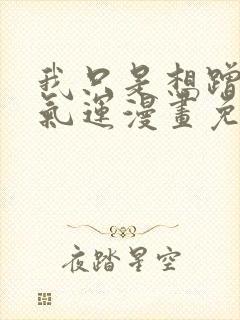 我只是想蹭
氣運漫畫免
夜踏星空